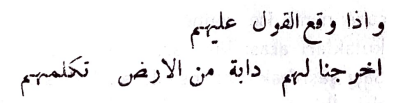 واذا وقع القول عليهم
اخرجنا لهم دابة من الارض تكلمهم